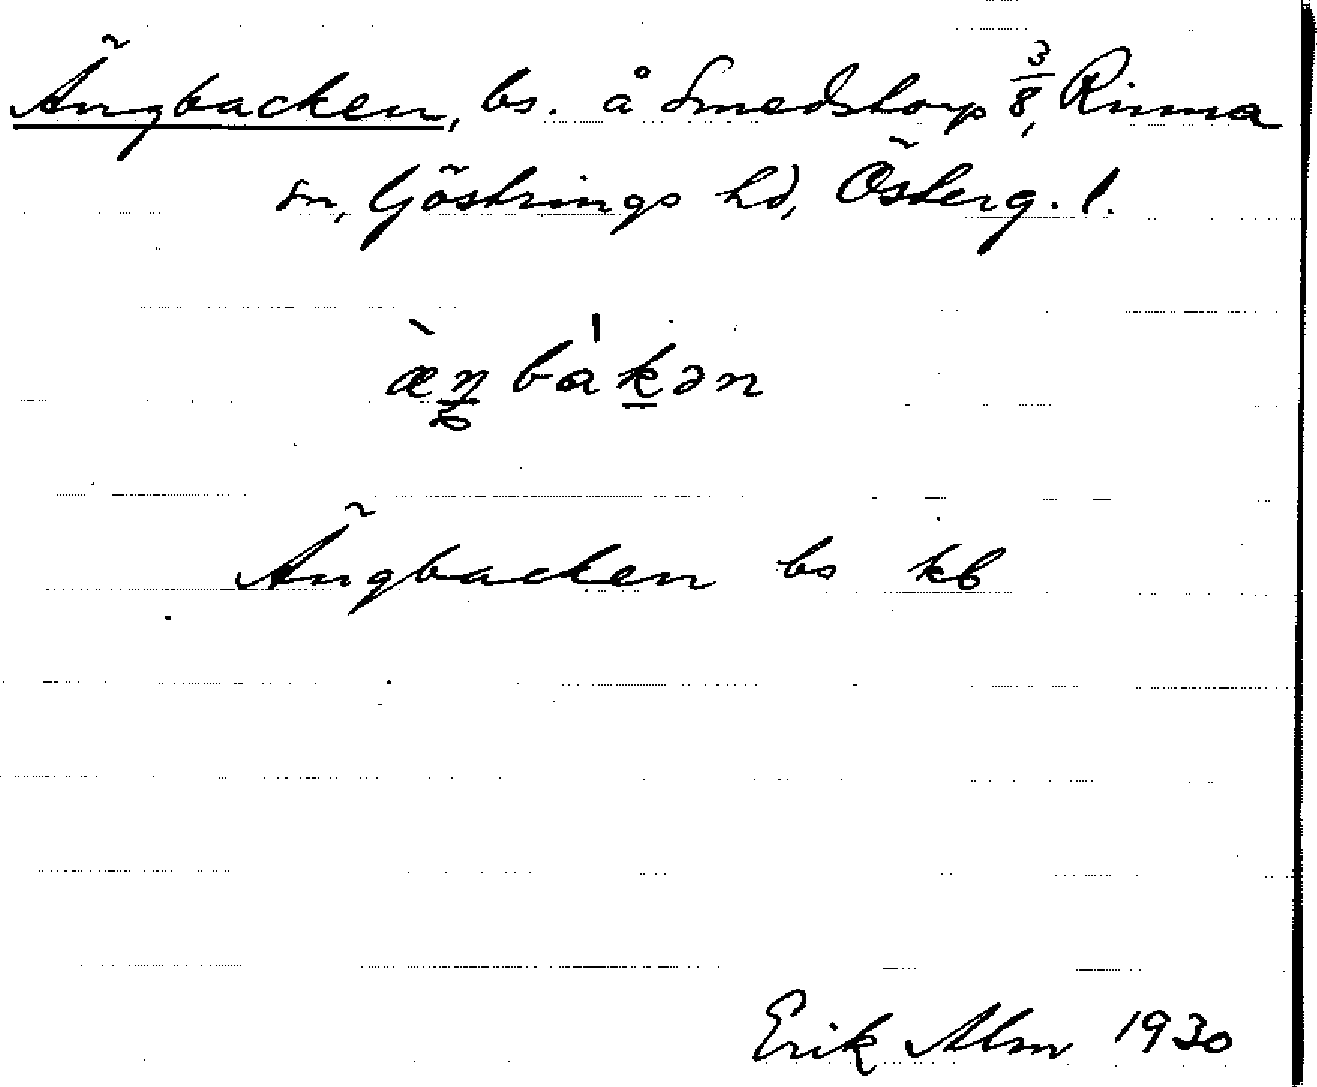 Ängbacken, bs. å Smedstorp 3/8, Rinna
sn, Göstrings hd, Österg. l.
æ̀ŋbàkən
Ängbacken bs kb
Erik Alm 1930